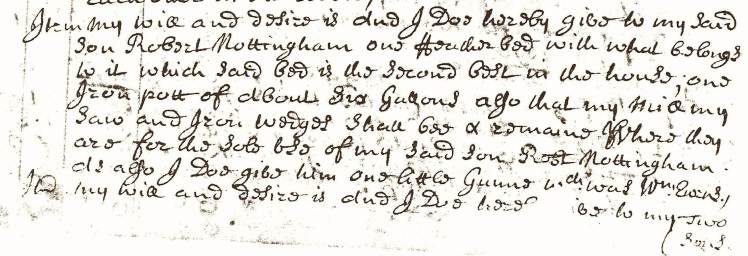 Item my will and desire is and I Doe hereby give to my said
son Robert Nottingham one ffeather bed with what belongs
to it which said bed is the second best in the house, one
Iron pott of about six Gallons also that my Mill my
saw and Iron wedges shall bee & remaine Where they
are for the sole use of my said son Robt Nottingham.
as also I Doe give him one little Gunne wch was Wm
Itm my will and desire is and I Doe to my Two
sons